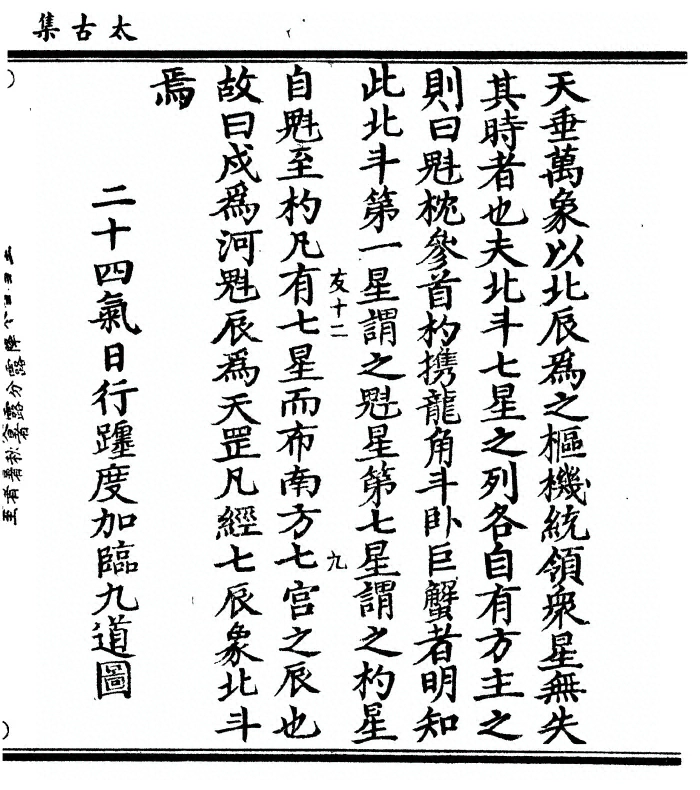 太古集
天垂萬象以北辰爲之樞機統領衆星無失
其時者也夫北斗七星之列各自有方主之
則曰魁枕參首杓携龍角斗卧巨蟹者明知
此北斗第一星謂之魁星第七星謂之杓星
友十二
九
自魁至杓凡有七星而布南方七宮之辰也
故曰戍爲河魁辰爲天罡凡經七辰象北斗
焉
二十四氣日行躔度加臨九道圖